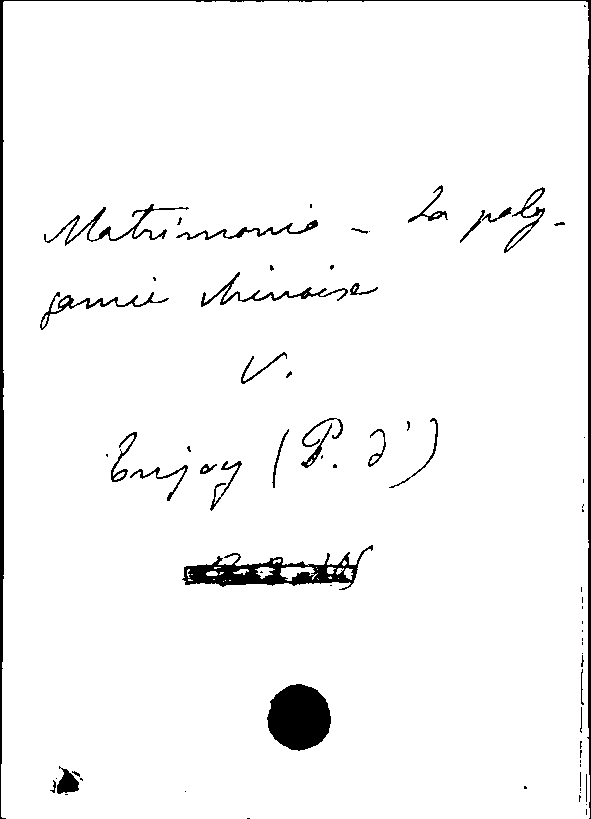 Matrimonio - La poly-
gamie chinoise
V.
Enjoy (P. d')